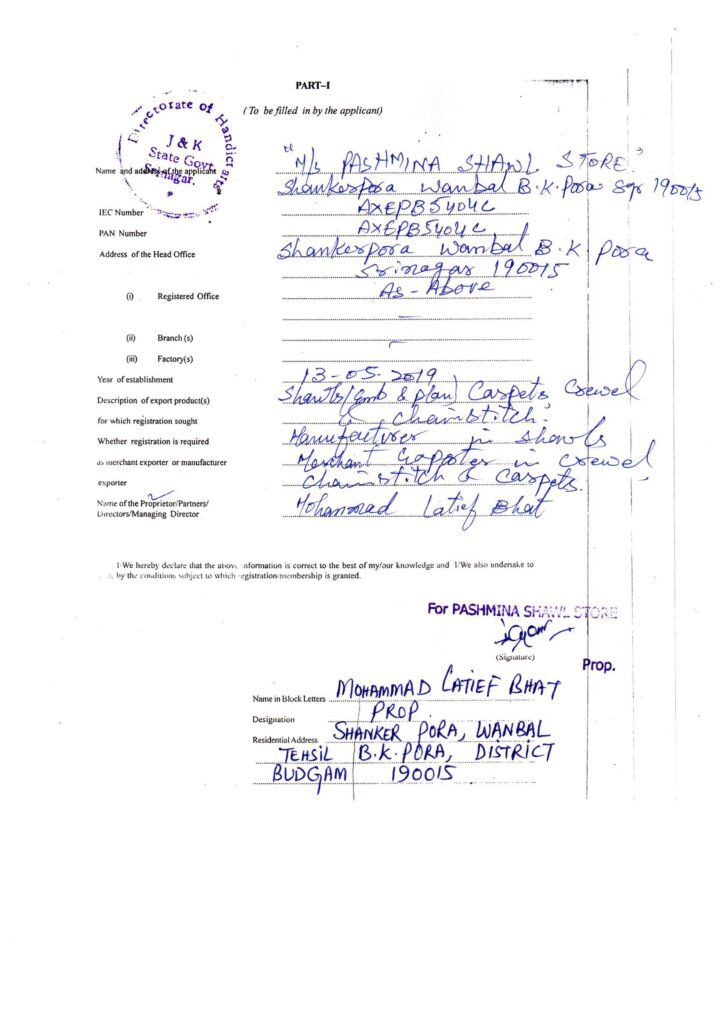 PART–I
( To be filled in by the applicant)
Directorate of Handicrafts
J & K
State Govt.
Srinagar.
Name and address of the applicant "M/s PASHMINA SHAWL STORE"
Shankerpora Wanbal B.K. Pora Sgr 190015
IEC Number AXEPB5404C
PAN Number AXEPB5404C
Address of the Head Office Shankerpora Wanbal B.K. Pora
Srinagar 190015
(i) Registered Office As - Above
(ii) Branch (s)
(iii) Factory(s)
Year of establishment 13-05-2019
Description of export product(s) Shawls/(emb & plan) Carpets, Crewel
for which registration sought & Chainstitch.
Whether registration is required Manufacturer in Shawls
as merchant exporter or manufacturer Merchant Exporter in Crewel
exporter Chainstitch & Carpets.
Name of the Proprietor/Partners/ Mohammad Latief Bhat
Directors/Managing Director
I/We hereby declare that the above information is correct to the best of my/our knowledge and I/We also undertake to
by the conditions subject to which registration/membership is granted.
For PASHMINA SHAWL STORE
(Signature)
Prop.
Name in Block Letters MOHAMMAD LATIEF BHAT
Designation PROP.
Residential Address SHANKER PORA, WANBAL
TEHSIL B.K. PORA, DISTRICT
BUDGAM 190015